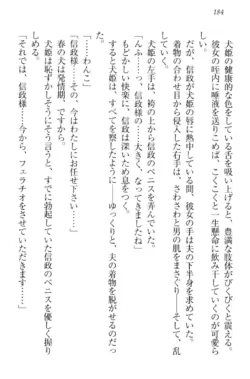 184
犬姫の健康的な色をしている舌を吸い上げると、豊満な肢体がびくびくと震え、
彼女の咥内に唾液を送りこめば、こくこくと一生懸命に飲み干していくのが可愛ら
しかった。だが、信政が犬姫の唇に夢中になる間、彼女の手は夫の下半身を求めて、
着物の合わせ目から侵入した右手は、さわさわと男の肌をまさぐり――そして、乱
犬姫の左手は、袴の上から信政のペニスを弄んでいた。
「んっ……信政様……大きくなってきましたね」
もどかしい快楽に、信政は深いため息をつく。
すると犬姫は――ゆっくりと、夫の着物を脱がせるのだった。
「……わんこ」
「信政様……その、今はわたしにお任せ下さい……」
春の犬は発情期、ですから……。
犬姫は恥ずかしそうにそう言うと、すでに勃起していた信政のペニスを優しく握り
しめる。
「それでは、信政様……今から、フェラチオをさせていただきます……」